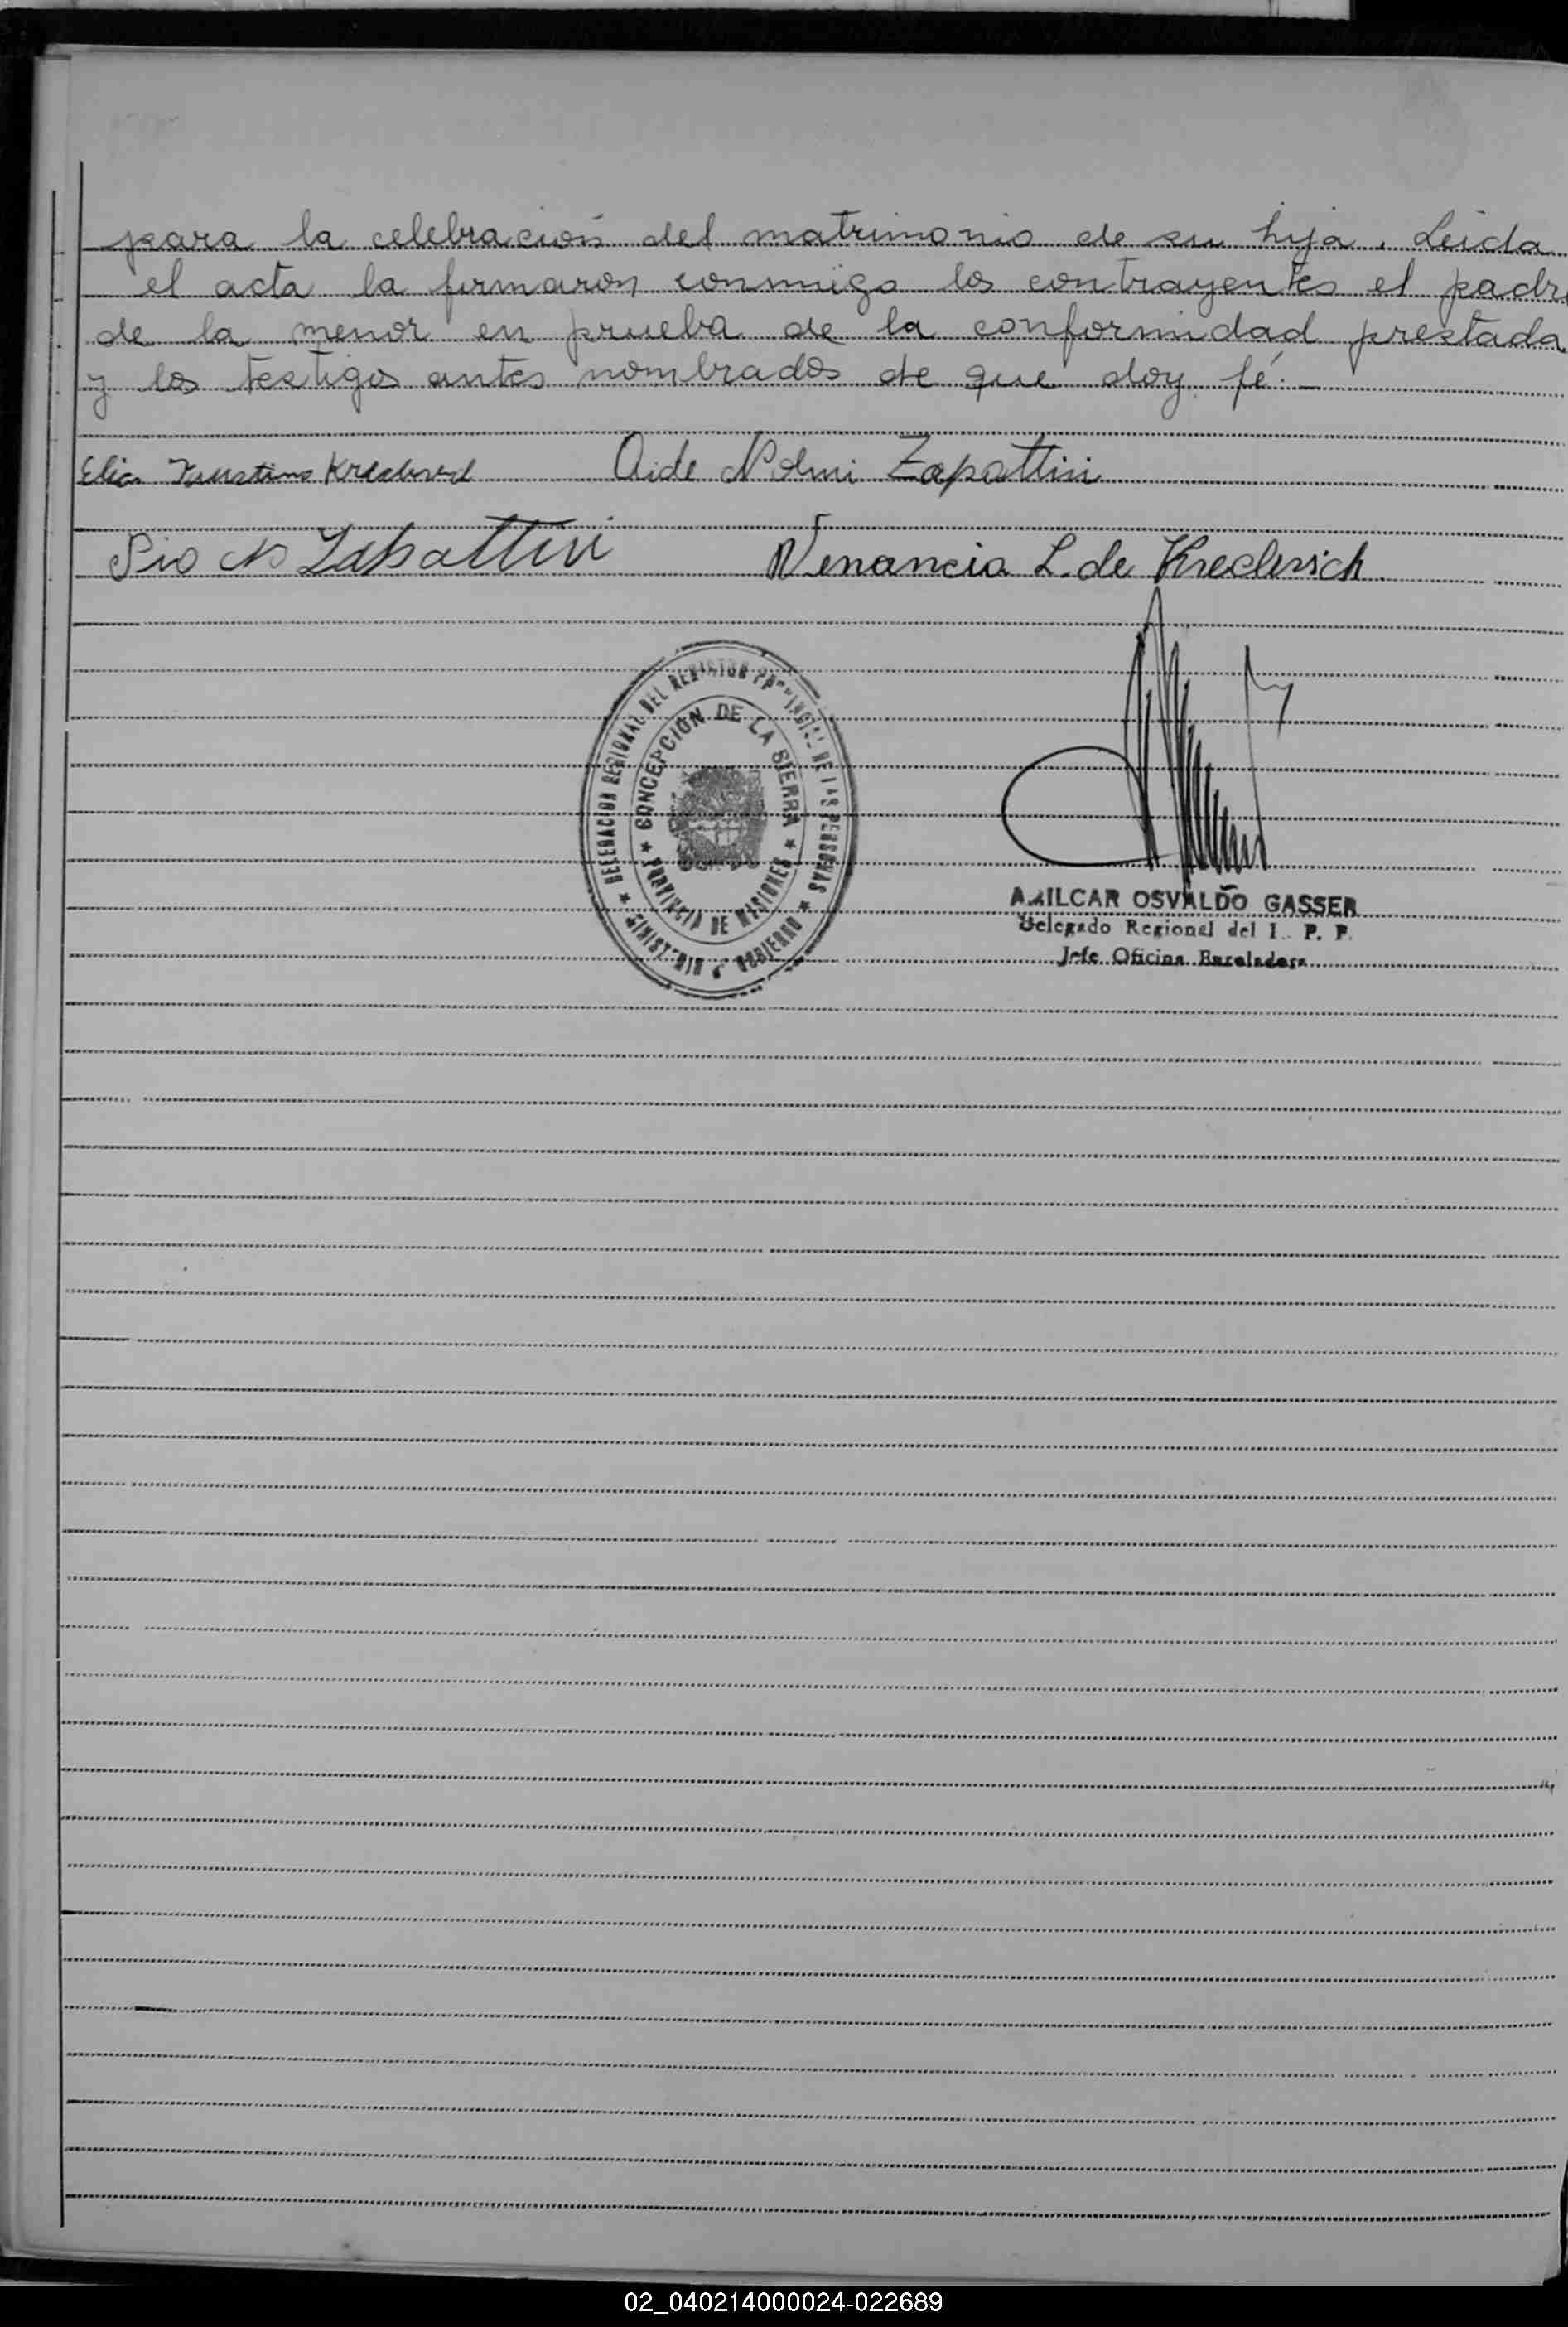 para la celebración del matrimonio de su hija. Leida
el acta la firmaron conmigo los contrayentes el padre
de la menor en prueba de la conformidad prestada
y los testigos antes nombrados de que doy fé.-
Elio Faustino Aide Nolmi Zapattini
Pio N Zapattini Venancia L. de Krederich
DELEGACION REGIONAL DEL REGISTRO PROVINCIAL DE LAS PERSONAS
CONCEPCION DE LA SIERRA
PROVINCIA DE MISIONES
MINISTERIO GOBIERNO
AMILCAR OSVALDO GASSER
Delegado Regional del I. P. P.
Jefe Oficina
02_040214000024-022689